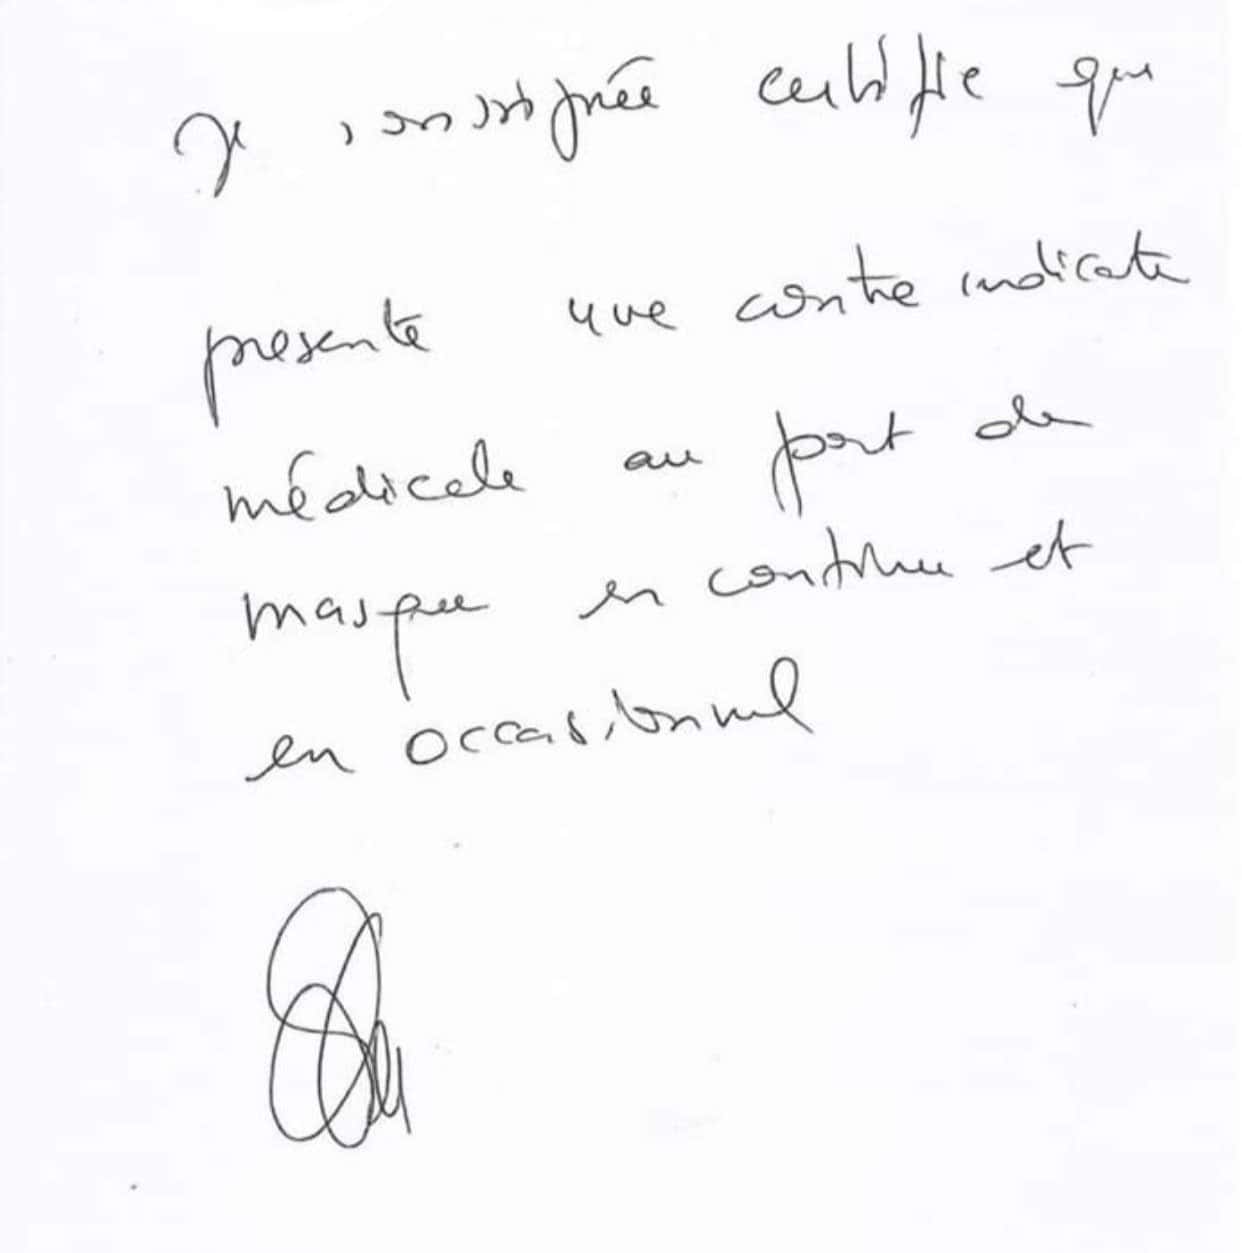 Je soussignée certifie que
presente une contre indicati
médicale au port de
masque en continu et
en occasionnel